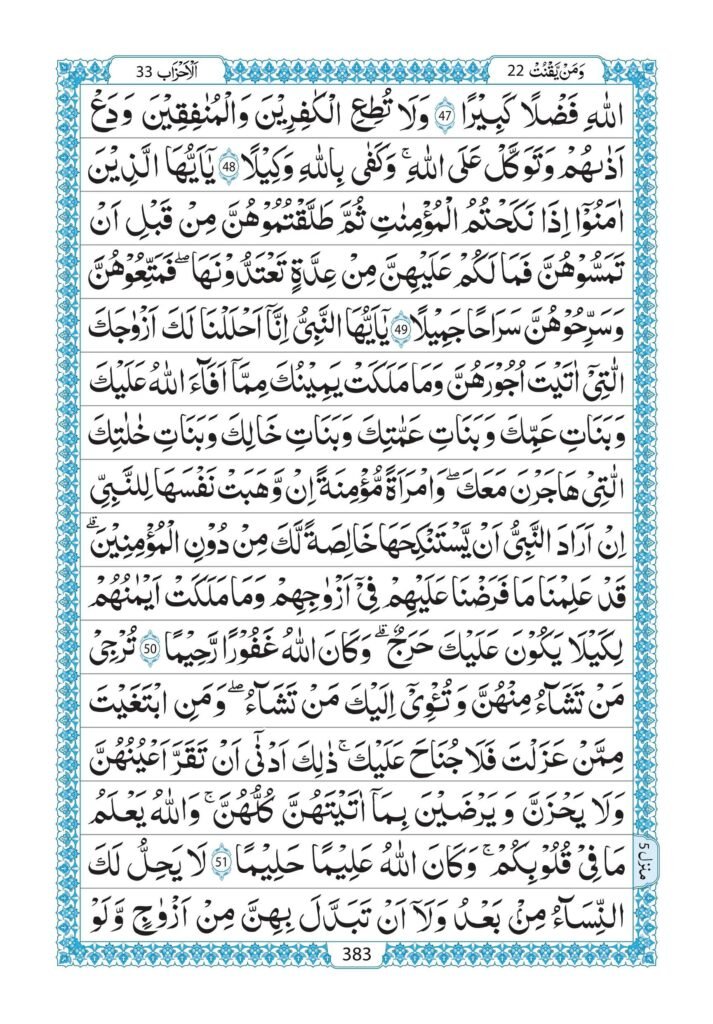 وَمَنْ يَّقْنُتْ 22
اَلْاَحْزَاب 33
اللّٰهِ فَضْلًا كَبِيْرًا 47 وَلَا تُطِعِ الْكٰفِرِيْنَ وَالْمُنٰفِقِيْنَ وَدَعْ
اَذٰىهُمْ وَتَوَكَّلْ عَلَى اللّٰهِ ۚ وَكَفٰى بِاللّٰهِ وَكِيْلًا 48 يٰۤاَيُّهَا الَّذِيْنَ
اٰمَنُوْۤا اِذَا نَكَحْتُمُ الْمُؤْمِنٰتِ ثُمَّ طَلَّقْتُمُوْهُنَّ مِنْ قَبْلِ اَنْ
تَمَسُّوْهُنَّ فَمَا لَكُمْ عَلَيْهِنَّ مِنْ عِدَّةٍ تَعْتَدُّوْنَهَا ۖ فَمَتِّعُوْهُنَّ
وَسَرِّحُوْهُنَّ سَرَاحًا جَمِيْلًا 49 يٰۤاَيُّهَا النَّبِيُّ اِنَّاۤ اَحْلَلْنَا لَكَ اَزْوَاجَكَ
الّٰتِيْۤ اٰتَيْتَ اُجُوْرَهُنَّ وَمَا مَلَكَتْ يَمِيْنُكَ مِمَّاۤ اَفَآءَ اللّٰهُ عَلَيْكَ
وَبَنَاتِ عَمِّكَ وَبَنَاتِ عَمّٰتِكَ وَبَنَاتِ خَالِكَ وَبَنَاتِ خٰلٰتِكَ
الّٰتِيْ هَاجَرْنَ مَعَكَ ۖ وَامْرَاَةً مُّؤْمِنَةً اِنْ وَّهَبَتْ نَفْسَهَا لِلنَّبِيِّ
اِنْ اَرَادَ النَّبِيُّ اَنْ يَّسْتَنْكِحَهَا خَالِصَةً لَّكَ مِنْ دُوْنِ الْمُؤْمِنِيْنَ ۗ
قَدْ عَلِمْنَا مَا فَرَضْنَا عَلَيْهِمْ فِيْۤ اَزْوَاجِهِمْ وَمَا مَلَكَتْ اَيْمَانُهُمْ
لِكَيْلَا يَكُوْنَ عَلَيْكَ حَرَجٌ ۗ وَكَانَ اللّٰهُ غَفُوْرًا رَّحِيْمًا 50 تُرْجِيْ
مَنْ تَشَآءُ مِنْهُنَّ وَتُـْٔوِيْۤ اِلَيْكَ مَنْ تَشَآءُ ۖ وَمَنِ ابْتَغَيْتَ
مِمَّنْ عَزَلْتَ فَلَا جُنَاحَ عَلَيْكَ ۚ ذٰلِكَ اَدْنٰۤى اَنْ تَقَرَّ اَعْيُنُهُنَّ
وَلَا يَحْزَنَّ وَيَرْضَيْنَ بِمَاۤ اٰتَيْتَهُنَّ كُلُّهُنَّ ۚ وَاللّٰهُ يَعْلَمُ
مَا فِيْ قُلُوْبِكُمْ ۚ وَكَانَ اللّٰهُ عَلِيْمًا حَلِيْمًا 51 لَا يَحِلُّ لَكَ
النِّسَآءُ مِنْۢ بَعْدُ وَلَاۤ اَنْ تَبَدَّلَ بِهِنَّ مِنْ اَزْوَاجٍ وَّلَوْ
منزل 5
383